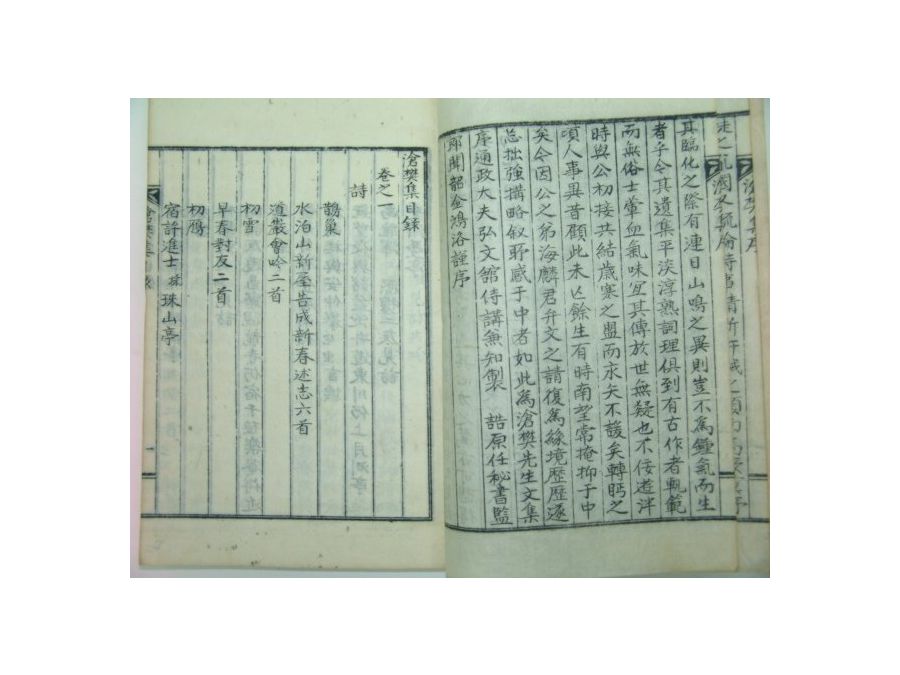 滄樊集序
其臨化之際有連日山鳴之異則豈不爲鍾氣而生
者乎今其遺集平淡淳熟詞理俱到有古作者軌範
而無俗士葷血氣味宜其傳於世無疑也不佞遊泮
時與公初接共結歲寒之盟而永矢不諼矣轉眄之
頃人事異昔顧此未亡餘生有時南望常掩抑于中
矣今因公之弟海麟君弁文之請復爲緣境歷歷遂
忘拙強搆略敘野感于中者如此爲滄樊先生文集
序通政大夫弘文館侍講兼知製 誥原任秘書監
郎聞韶金鴻洛謹序
滄樊集目錄
卷之一
詩
鵲巢
水泊山新居告成新春述志六首
道巖會吟二首
早春對友二首
初雪
初鴈
宿許進士 珠山亭